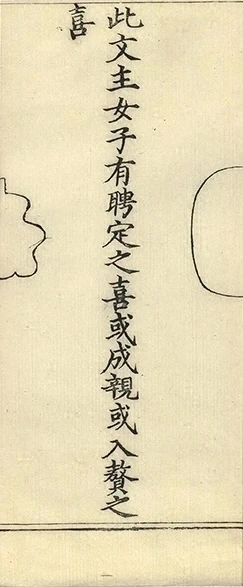 此文主女子有聘定之喜或成親或入贅之
喜